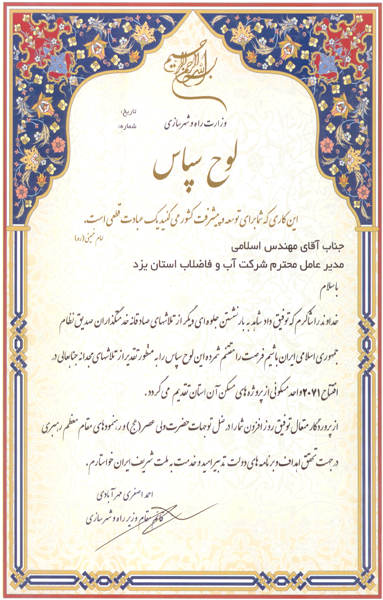 بسم الله الرحمن الرحیم
تاریخ:
شماره:
وزارت راه و شهرسازی
لوح سپاس
این کاری که شما برای توسعه و پیشرفت کشور می کنید یک عبادت قطعی است.
امام خمینی (ره)
جناب آقای مهندس اسلامی
مدیر عامل محترم شرکت آب و فاضلاب استان یزد
با سلام
خداوند را شاکرم که توفیق داد شاهد به بار نشستن جلوه ای دیگر از تلاشهای صادقانه خدمتگذاران صدیق نظام
جمهوری اسلامی ایران باشیم فرصت را مغتنم شمرده این لوح سپاس را به منظور تقدیر از تلاشهای مجدانه جنابعالی در
افتتاح ۲۰۷۱ واحد مسکونی از پروژه های مسکن آن استان تقدیم می گردد.
از پروردگار متعال توفیق روز افزون شما را در ظل توجهات حضرت ولی عصر (عج) و رهنمودهای مقام معظم رهبری
در جهت تحقق اهداف و برنامه های دولت تدبیر و امید و خدمت به ملت شریف ایران خواستارم.
احمد اصغری مهرآبادی
قائم مقام وزیر راه و شهرسازی